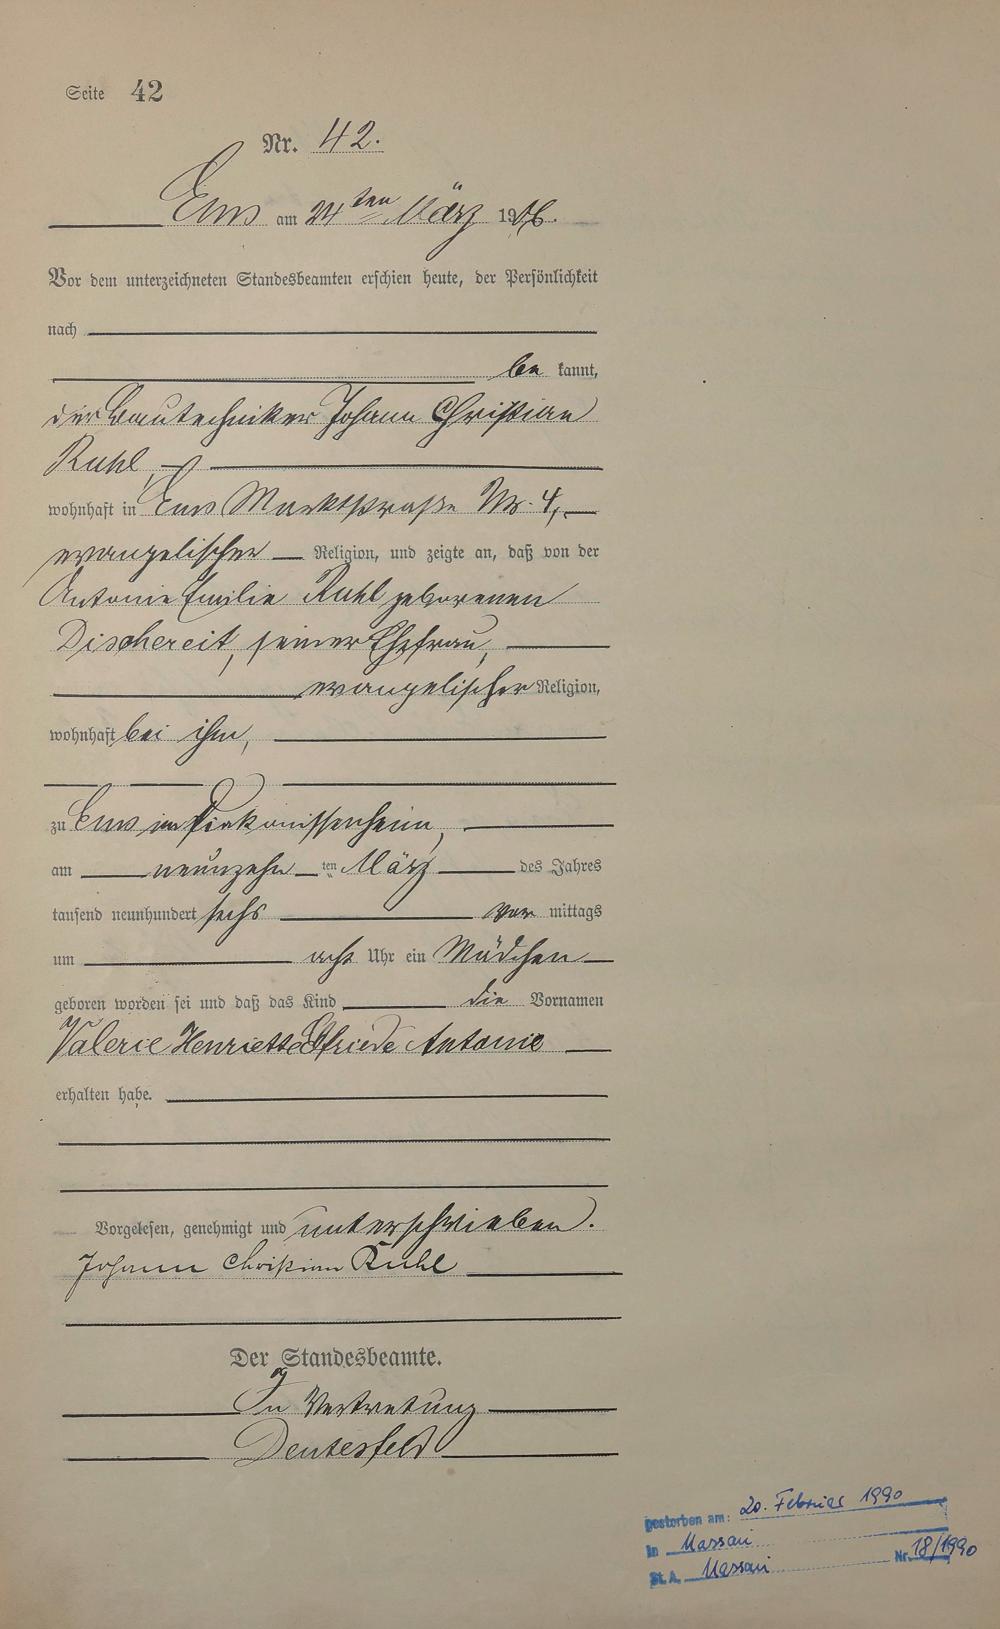 Seite 42
Nr. 42.
Ems am 24ten März 1906.
Vor dem unterzeichneten Standesbeamten erschien heute, der Persönlichkeit
nach
be kannt,
der Bautechniker Johann Christian
Ruhl,
wohnhaft in Ems Marktstraße Nr. 4,
evangelischer Religion, und zeigte an, daß von der
Antonie Emilie Ruhl geborenen
Dischereit, seiner Ehefrau,
evangelischer Religion,
wohnhaft bei ihm,
zu Ems im Diakonissenheim,
am neunzehn ten März des Jahres
tausend neunhundert sechs vor mittags
um acht Uhr ein Mädchen
geboren worden sei und daß das Kind die Vornamen
Valerie Henriette Elfriede Antonie
erhalten habe.
Vorgelesen, genehmigt und unterschrieben.
Johann Christian Ruhl
Der Standesbeamte.
In Vertretung
gestorben am: 20. Februar 1990
in Nassau
St. A. Nassau Nr. 18/1990